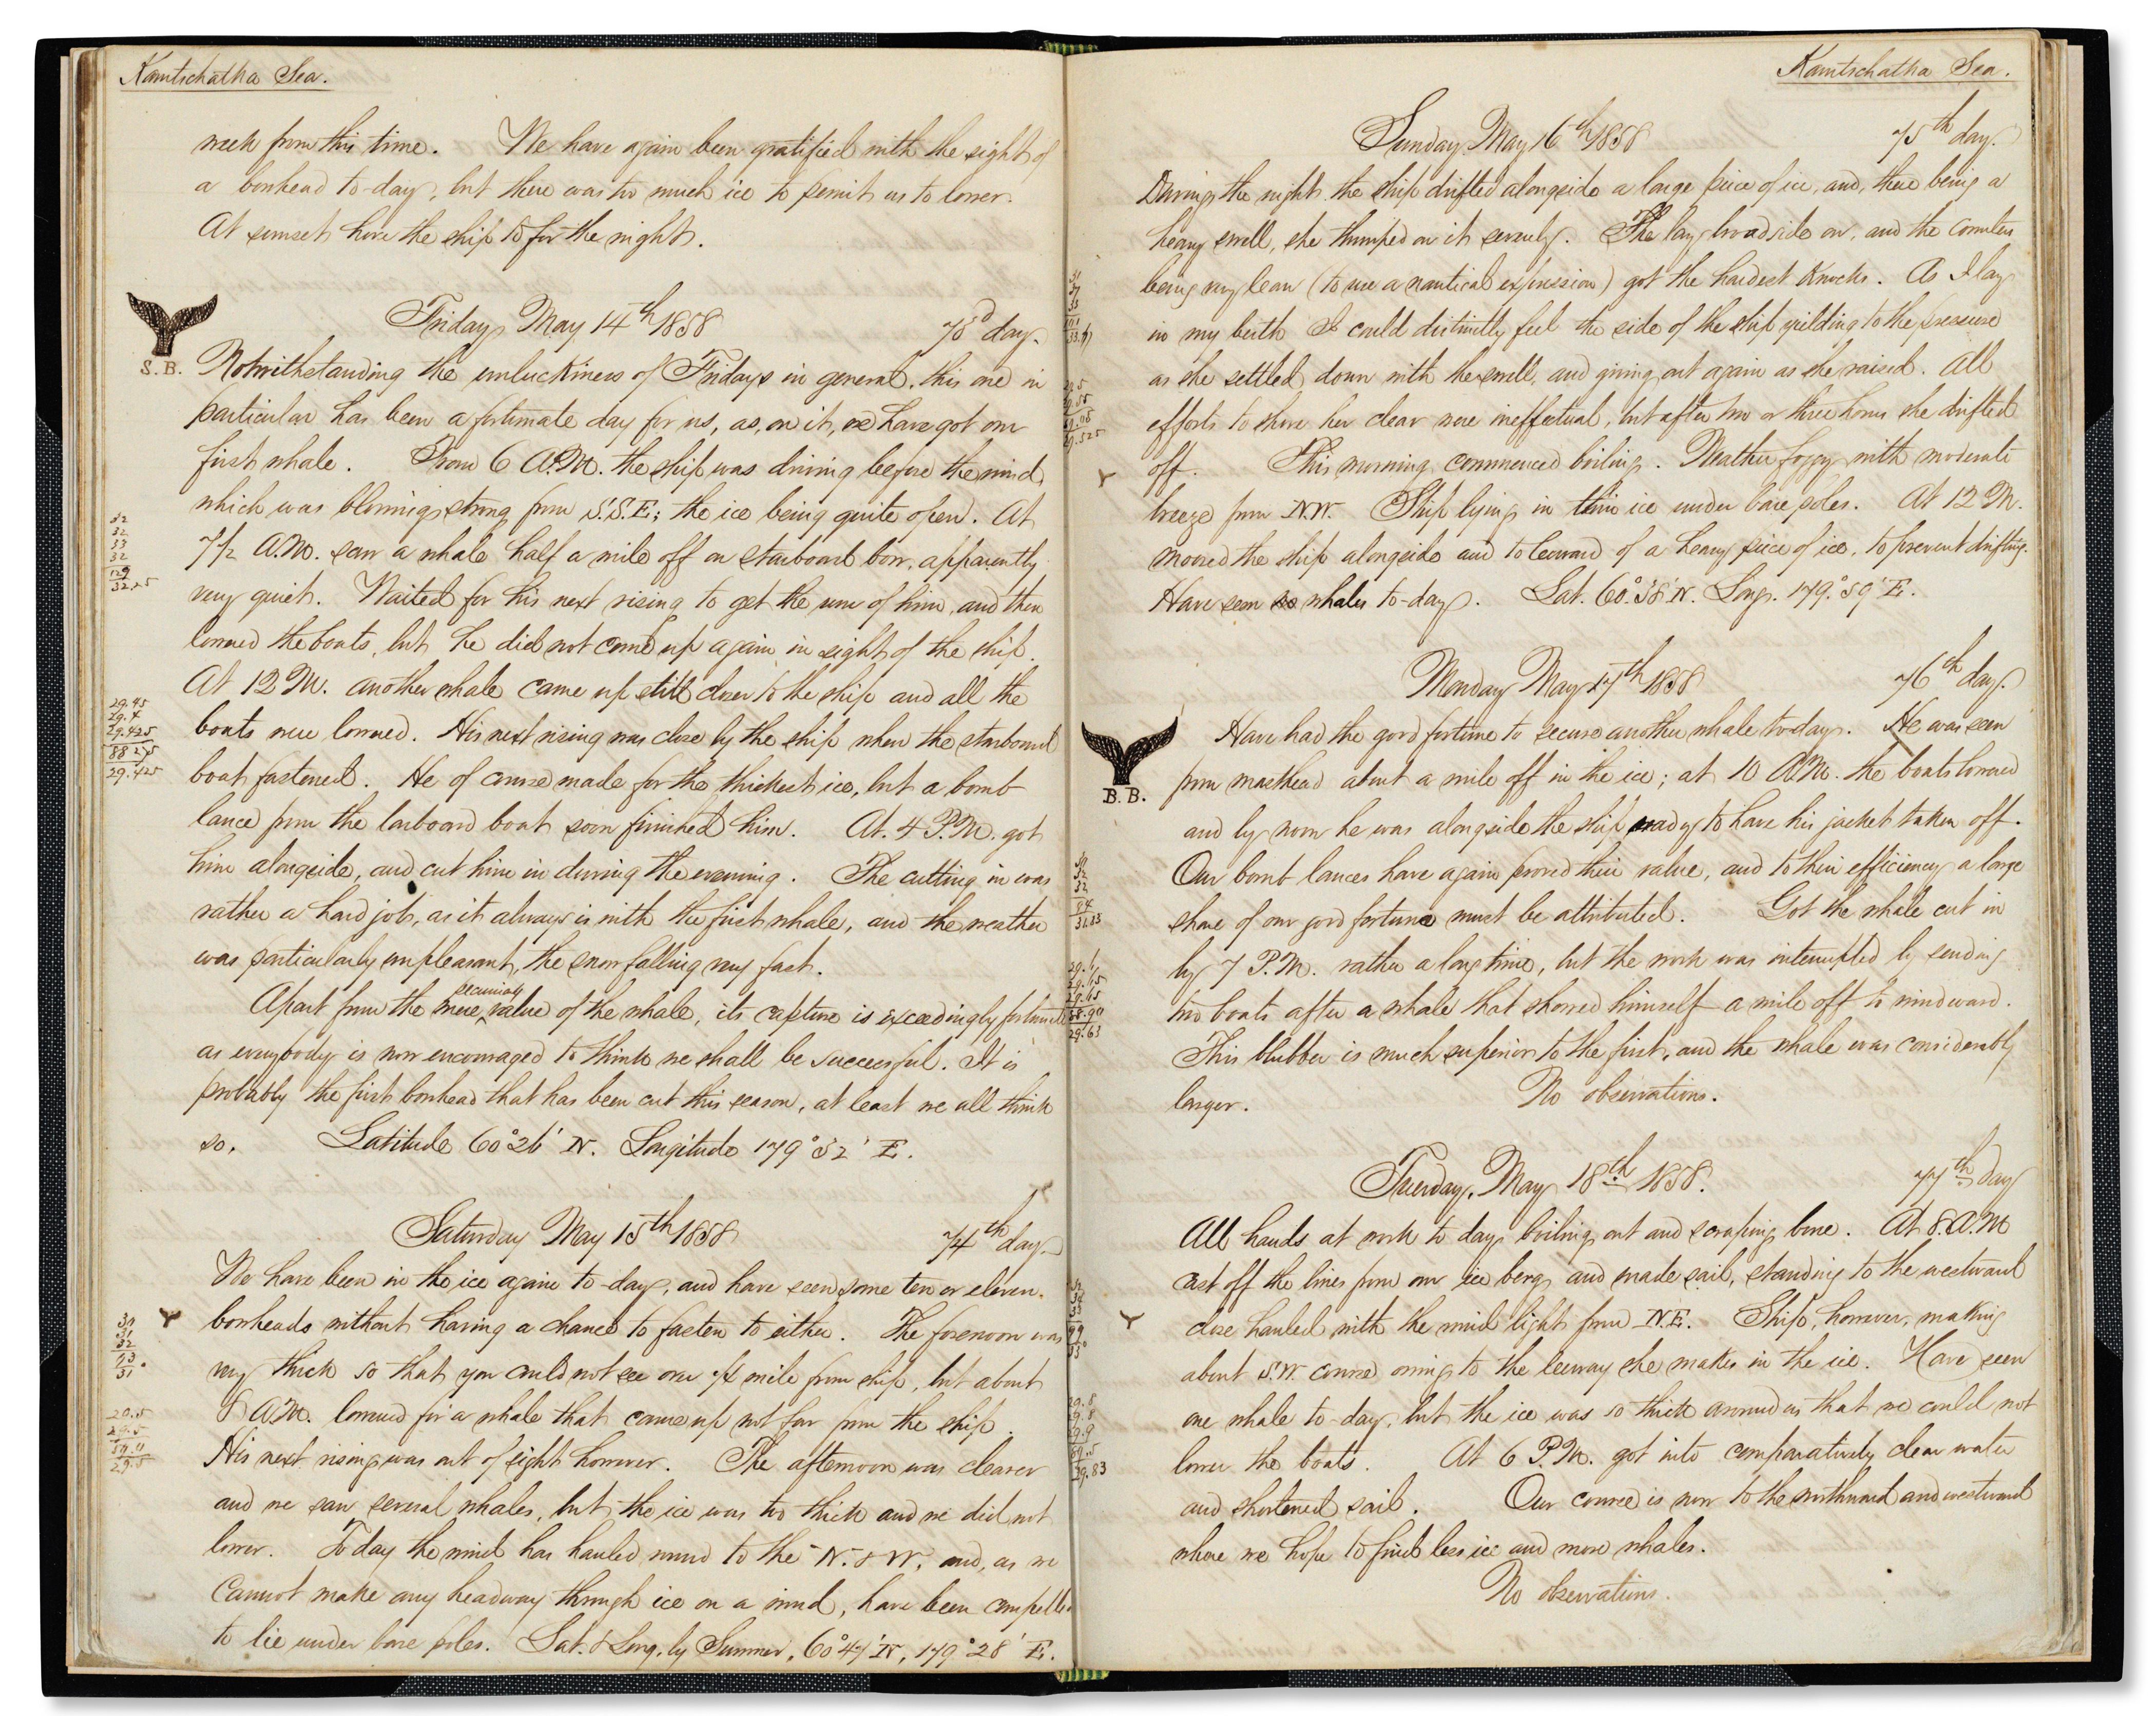 Kamtschatka Sea.
week from this time. We have again been gratified with the sight of
a bowhead to-day, but there was too much ice to permit us to lower.
At sunset hove the ship to for the night.
Friday May 14th 1858 73d day.
S. B.
Notwithstanding the unluckiness of Fridays in general, this one in
particular has been a fortunate day for us, as, on it, we have got our
first whale. From 6 A.M. the ship was driving before the wind,
which was blowing strong from S.S.E; the ice being quite open. At
7 1/2 A.M. saw a whale half a mile off on starboard bow, apparently
very quiet. Waited for his next rising to get the run of him, and then
lowered the boats, but he did not come up again in sight of the ship.
At 12 M. another whale came up still closer to the ship and all the
boats were lowered. His next rising was close by the ship when the starboard
boat fastened. He of course made for the thickest ice, but a bomb
lance from the larboard boat soon finished him. At 4 P.M. got
him alongside, and cut him in during the evening. The cutting in was
rather a hard job, as it always is with the first whale, and the weather
was particularly unpleasant, the snow falling very fast.
Apart from the mere pecuniary value of the whale, its capture is exceedingly fortunate
as everybody is now encouraged to think we shall be successful. It is
probably the first bowhead that has been cut this season, at least we all think
so. Latitude 60° 26' N. Longitude 179° 52' E.
32
32
33
32
129
32.25
29.45
29.4
29.425
88 275
29.425
Saturday May 15th 1858 74th day.
We have been in the ice again to-day, and have seen some ten or eleven
bowheads without having a chance to fasten to either. The forenoon was
very thick so that you could not see over 1/4 mile from ship, but about
8 A.M. lowered for a whale that came up not far from the ship.
His next rising was out of sight however. The afternoon was clearer
and we saw several whales, but the ice was too thick and we did not
lower. To day the wind has hauled round to the N. & W. and, as we
cannot make any headway through ice on a wind, have been compelled
to lie under bare poles. Lat. & Long. by Sumner, 60° 47' N, 179° 28' E.
30
31
32
93
31
29.5
29.5
59.0
29.5
Kamtschatka Sea.
Sunday May 16th 1858 75th day.
During the night the ship drifted alongside a large piece of ice, and, there being a
heavy swell, she thumped on it severely. She lay broadside on, and the counters
being very lean (to use a nautical expression) got the hardest knocks. As I lay
in my berth I could distinctly feel the side of the ship yielding to the pressure
as she settled down with the swell, and giving out again as she raised. All
efforts to shove her clear were ineffectual, but after two or three hours she drifted
off. This morning commenced boiling. Weather foggy with moderate
breeze from N.W. Ship lying in thin ice under bare poles. At 12 M.
moored the ship alongside and to leeward of a heavy piece of ice, to prevent drifting.
Have seen no whales to-day. Lat. 60° 38' N. Long. 179° 59' E.
Monday May 17th 1858 76th day.
B. B.
Have had the good fortune to secure another whale to-day. He was seen
from masthead about a mile off in the ice; at 10 A.M. the boats lowered
and by noon he was alongside the ship ready to have his jacket taken off.
Our bomb lances have again proved their value, and to their efficiency a large
share of our good fortune must be attributed. Got the whale cut in
by 7 P.M. rather a long time, but the work was interrupted by sending
two boats after a whale that showed himself a mile off to windward.
This blubber is much superior to the first, and the whale was considerably
larger. No observations.
Tuesday, May 18th 1858. 77th day
All hands at work to day boiling out and scraping bone. At 8 A.M
cast off the lines from our ice berg and made sail, standing to the westward
close hauled with the wind light from N.E. Ship, however, making
about S.W. course owing to the leeway she makes in the ice. Have seen
one whale to-day, but the ice was so thick around us that we could not
lower the boats. At 6 P.M. got into comparatively clear water
and shortened sail. Our course is now to the northward and westward
where we hope to find less ice and more whales.
No observations.